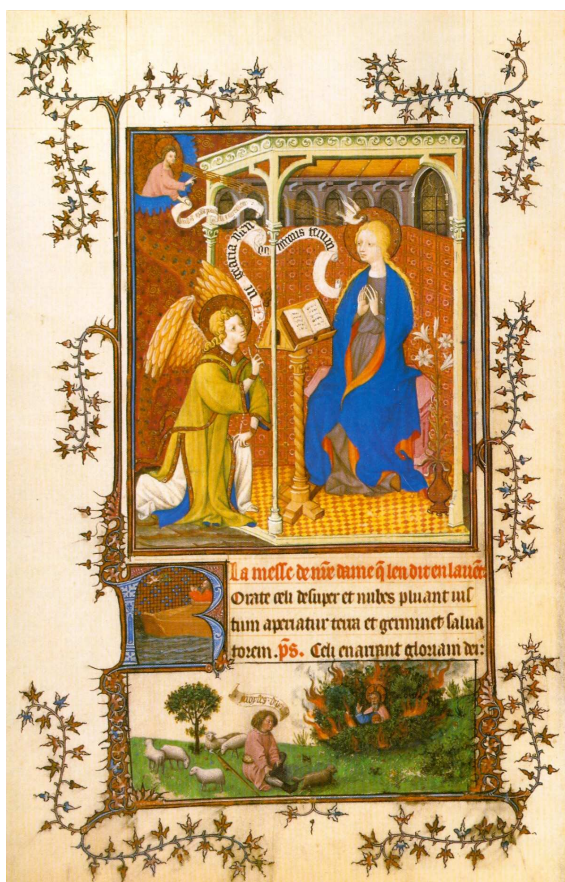 gracia
tecum
La messe de nr̄e dame q̄ len dit en lauēt
ROrate celi desuper et nubes pluant ius
tum aperiatur terra et germinet salua
torem. p̄s. Celi enarrant gloriam dei: